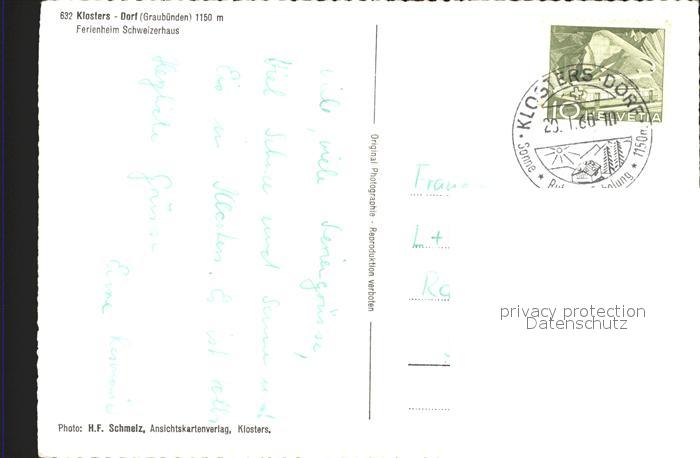 632 Klosters - Dorf (Graubünden) 1150 m
Ferienheim Schweizerhaus
viele, viele Feriengrüsse,
Viel Schnee und Sonne und
Eis in Klosters. Es ist
Herzliche Grüsse
Original Photographie - Reproduktion verboten
KLOSTERS-DORF
1.60
Sonne ★ ★ 1150m
10 HELVETIA
L +
Ra
privacy protection
Datenschutz
Photo: H.F. Schmelz, Ansichtskartenverlag, Klosters.